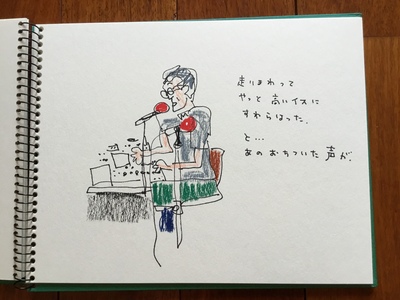 走りまわって
やっと 高いイスに
すわらはった.
と...
あの おちついた 声が.